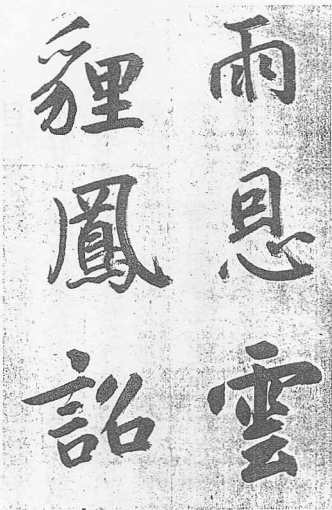 雨恩雲
貍鳳詔